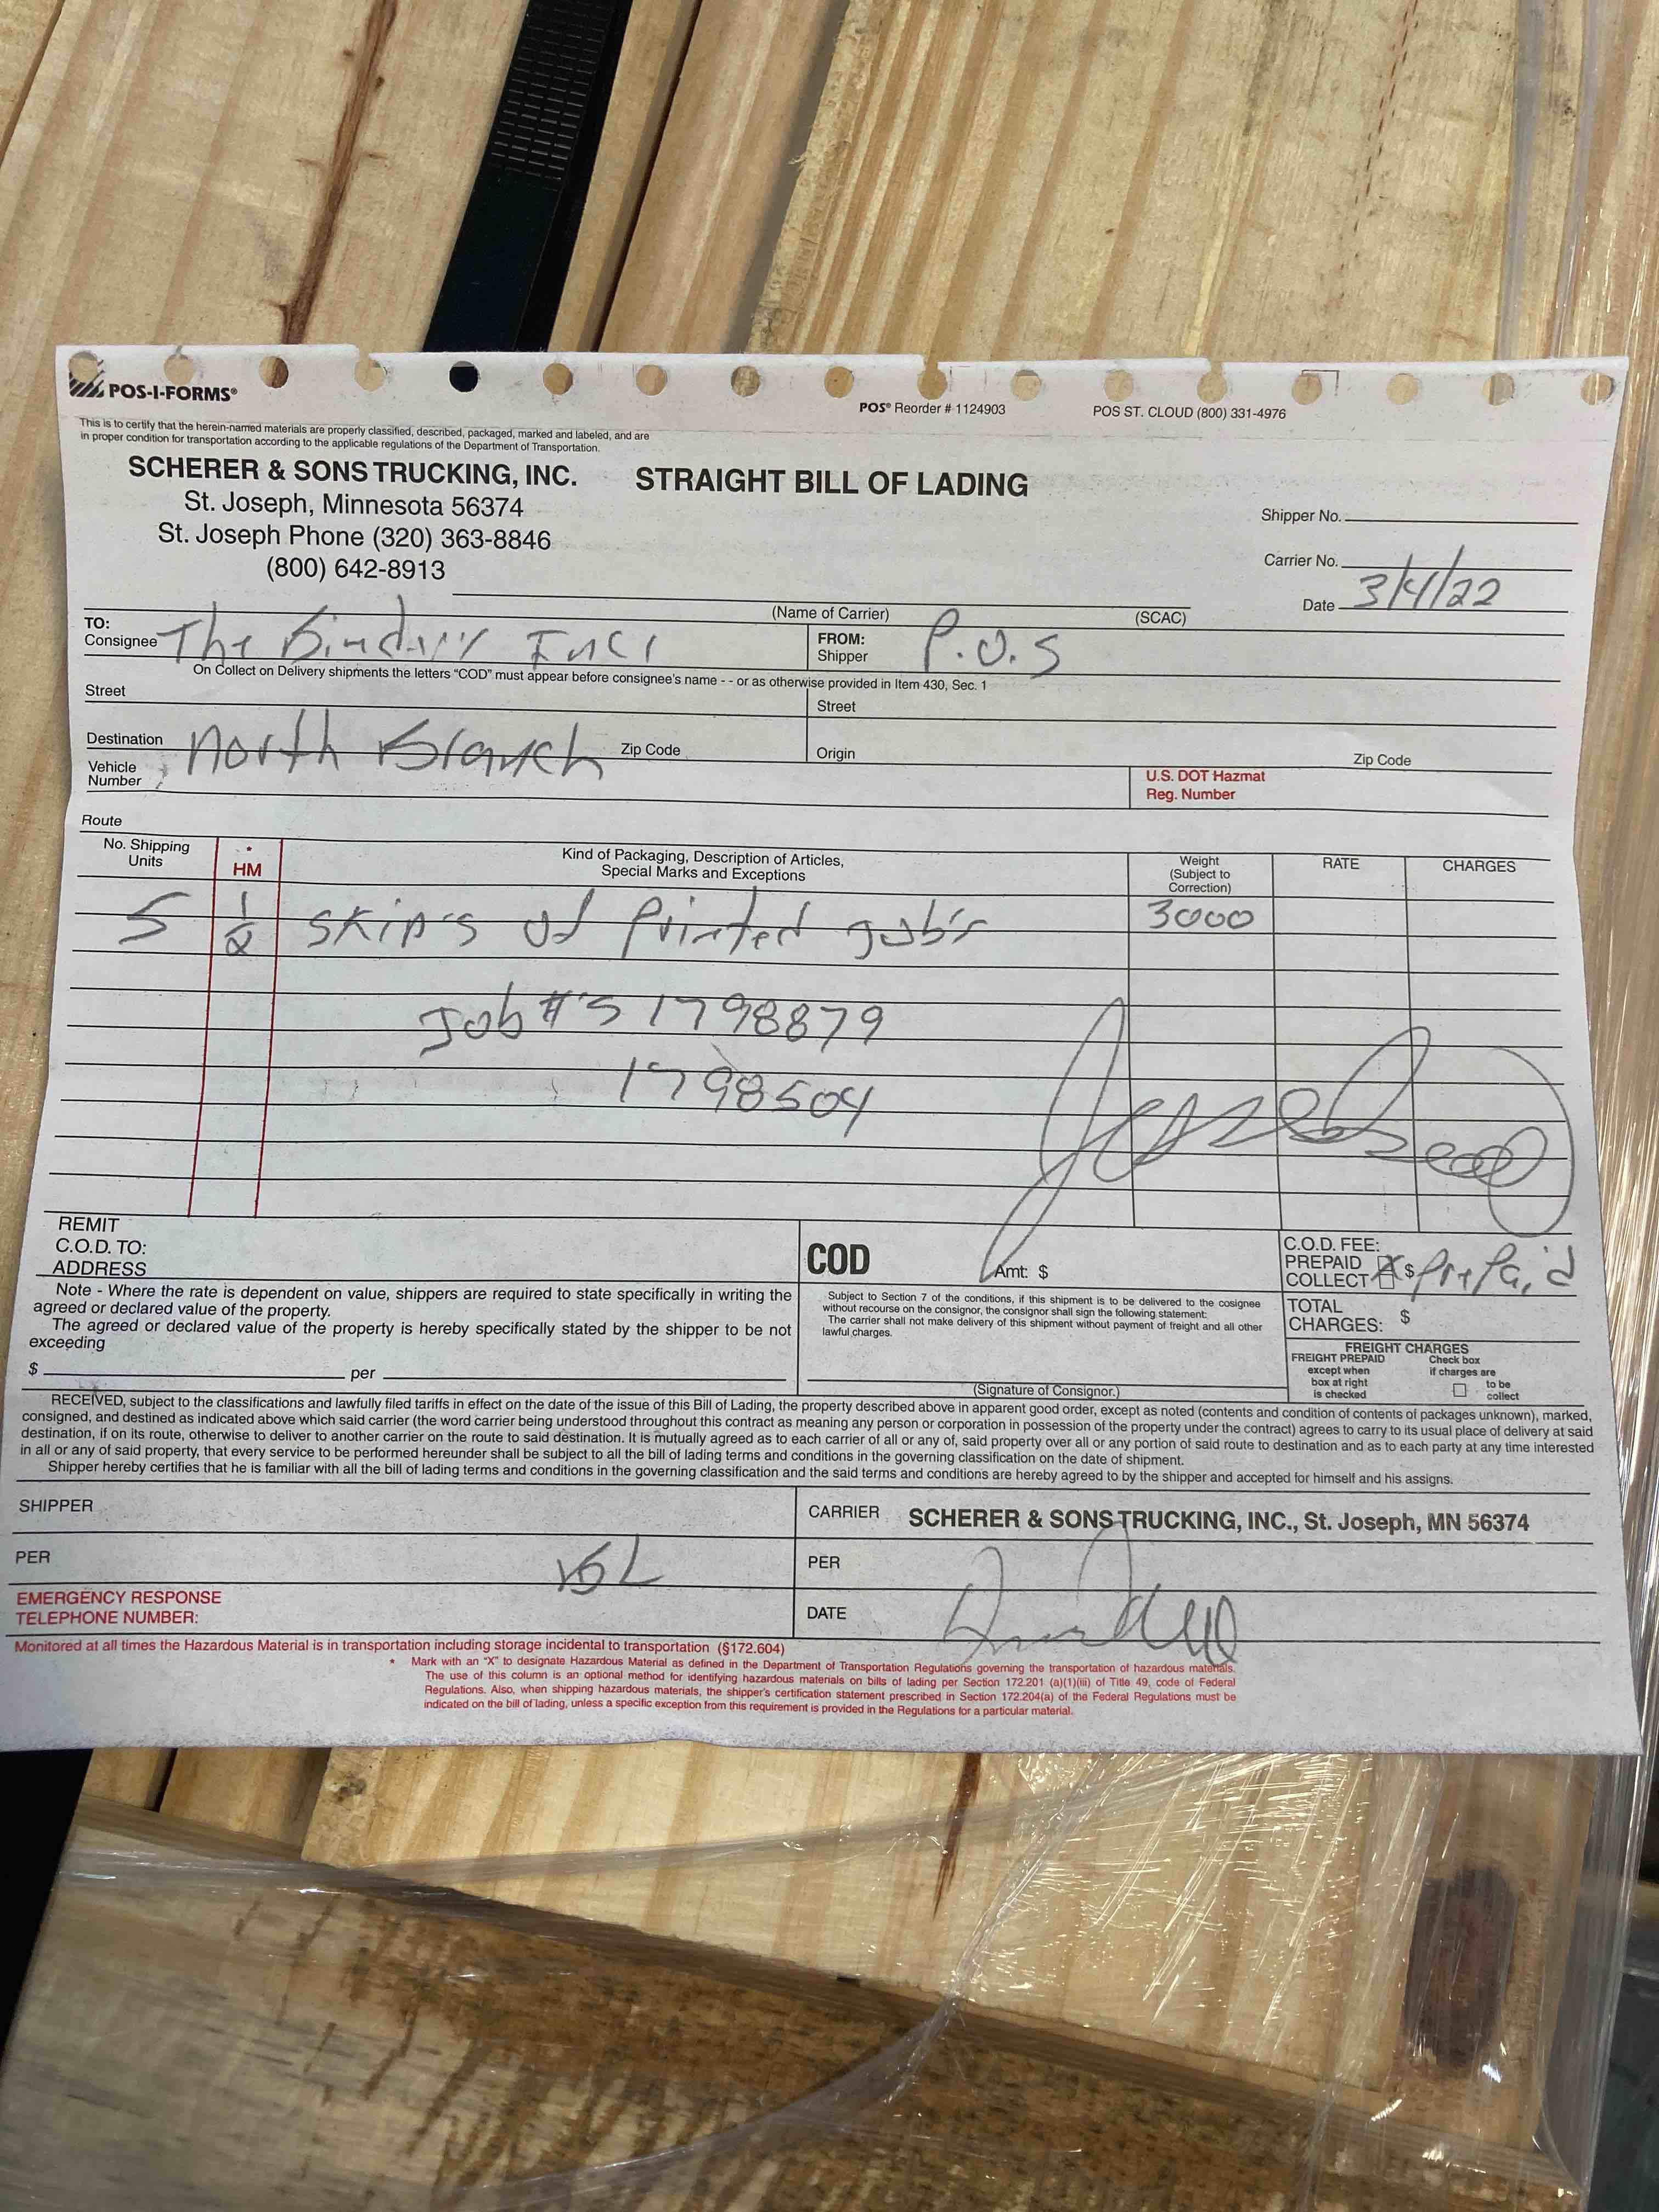 POS-I-FORMS®
POS® Reorder # 1124903
POS ST. CLOUD (800) 331-4976
This is to certify that the herein-named materials are properly classified, described, packaged, marked and labeled, and are
in proper condition for transportation according to the applicable regulations of the Department of Transportation.
SCHERER & SONS TRUCKING, INC.
St. Joseph, Minnesota 56374
St. Joseph Phone (320) 363-8846
(800) 642-8913
STRAIGHT BILL OF LADING
Shipper No.
Carrier No.
Date 3/4/22
(Name of Carrier) (SCAC)
TO:
Consignee The Bindery Inc
FROM:
Shipper P.O.S
On Collect on Delivery shipments the letters "COD" must appear before consignee's name - - or as otherwise provided in Item 430, Sec. 1
Street
Street
Destination North Branch Zip Code
Origin Zip Code
Vehicle
Number
U.S. DOT Hazmat
Reg. Number
Route
No. Shipping
Units
*
HM
Kind of Packaging, Description of Articles,
Special Marks and Exceptions
Weight
(Subject to
Correction)
RATE
CHARGES
5 1/2 skip's of Printed Job's 3000
Job #'s 1798879
1798504
REMIT
C.O.D. TO:
ADDRESS
COD
Amt: $
C.O.D. FEE:
PREPAID
COLLECT X $ Prepaid
Note - Where the rate is dependent on value, shippers are required to state specifically in writing the
agreed or declared value of the property.
The agreed or declared value of the property is hereby specifically stated by the shipper to be not
exceeding
$ per
Subject to Section 7 of the conditions, if this shipment is to be delivered to the cosignee
without recourse on the consignor, the consignor shall sign the following statement:
The carrier shall not make delivery of this shipment without payment of freight and all other
lawful charges.
(Signature of Consignor.)
TOTAL
CHARGES: $
FREIGHT CHARGES
FREIGHT PREPAID
except when
box at right
is checked
Check box
if charges are
to be
collect
RECEIVED, subject to the classifications and lawfully filed tariffs in effect on the date of the issue of this Bill of Lading, the property described above in apparent good order, except as noted (contents and condition of contents of packages unknown), marked,
consigned, and destined as indicated above which said carrier (the word carrier being understood throughout this contract as meaning any person or corporation in possession of the property under the contract) agrees to carry to its usual place of delivery at said
destination, if on its route, otherwise to deliver to another carrier on the route to said destination. It is mutually agreed as to each carrier of all or any of, said property over all or any portion of said route to destination and as to each party at any time interested
in all or any of said property, that every service to be performed hereunder shall be subject to all the bill of lading terms and conditions in the governing classification on the date of shipment.
Shipper hereby certifies that he is familiar with all the bill of lading terms and conditions in the governing classification and the said terms and conditions are hereby agreed to by the shipper and accepted for himself and his assigns.
SHIPPER
CARRIER SCHERER & SONS TRUCKING, INC., St. Joseph, MN 56374
PER
PER
EMERGENCY RESPONSE
TELEPHONE NUMBER:
DATE
Monitored at all times the Hazardous Material is in transportation including storage incidental to transportation (§172.604)
* Mark with an "X" to designate Hazardous Material as defined in the Department of Transportation Regulations governing the transportation of hazardous materials.
The use of this column is an optional method for identifying hazardous materials on bills of lading per Section 172.201 (a)(1)(iii) of Title 49, code of Federal
Regulations. Also, when shipping hazardous materials, the shipper's certification statement prescribed in Section 172.204(a) of the Federal Regulations must be
indicated on the bill of lading, unless a specific exception from this requirement is provided in the Regulations for a particular material.